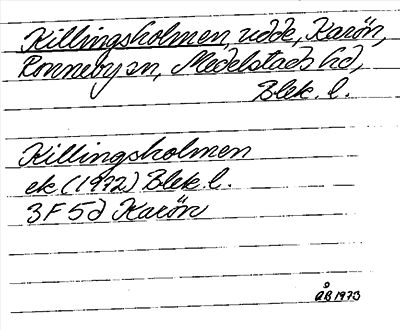 Killingsholmen, udde, Karön,
Ronneby sn, Medelstads hd,
Blek. l.
Killingsholmen
ek (1972) Blek. l.
3F 5d Karön
ÅB 1973